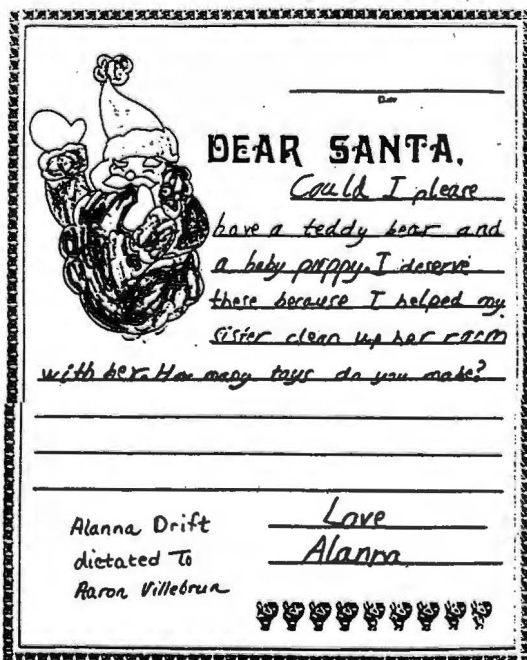 Date
DEAR SANTA,
Could I please
have a teddy bear and
a baby puppy. I deserve
these because I helped my
sister clean up her room
with her. How many toys do you make?
Love
Alanna
Alanna Drift
dictated To
Aaron Villebrun